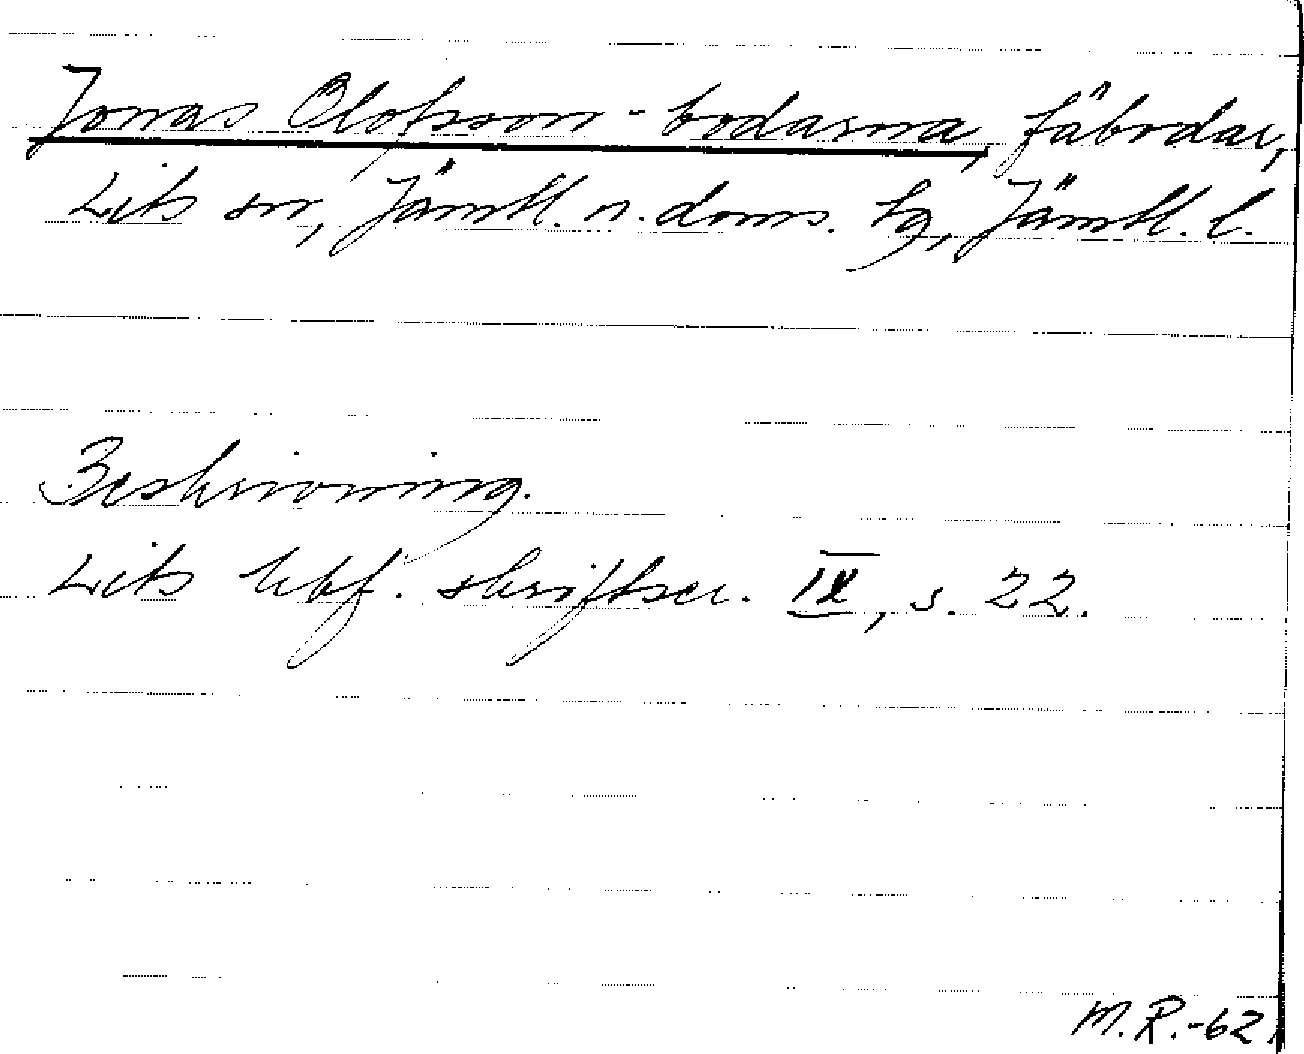 Jonas Olofsson-bodarna, fäbodar,
Lits sn, Jämtl. n. doms. hg, Jämtl. l.
Beskrivning.
Lits hbf. skriftser. IX, s. 22.
M.R.-62.